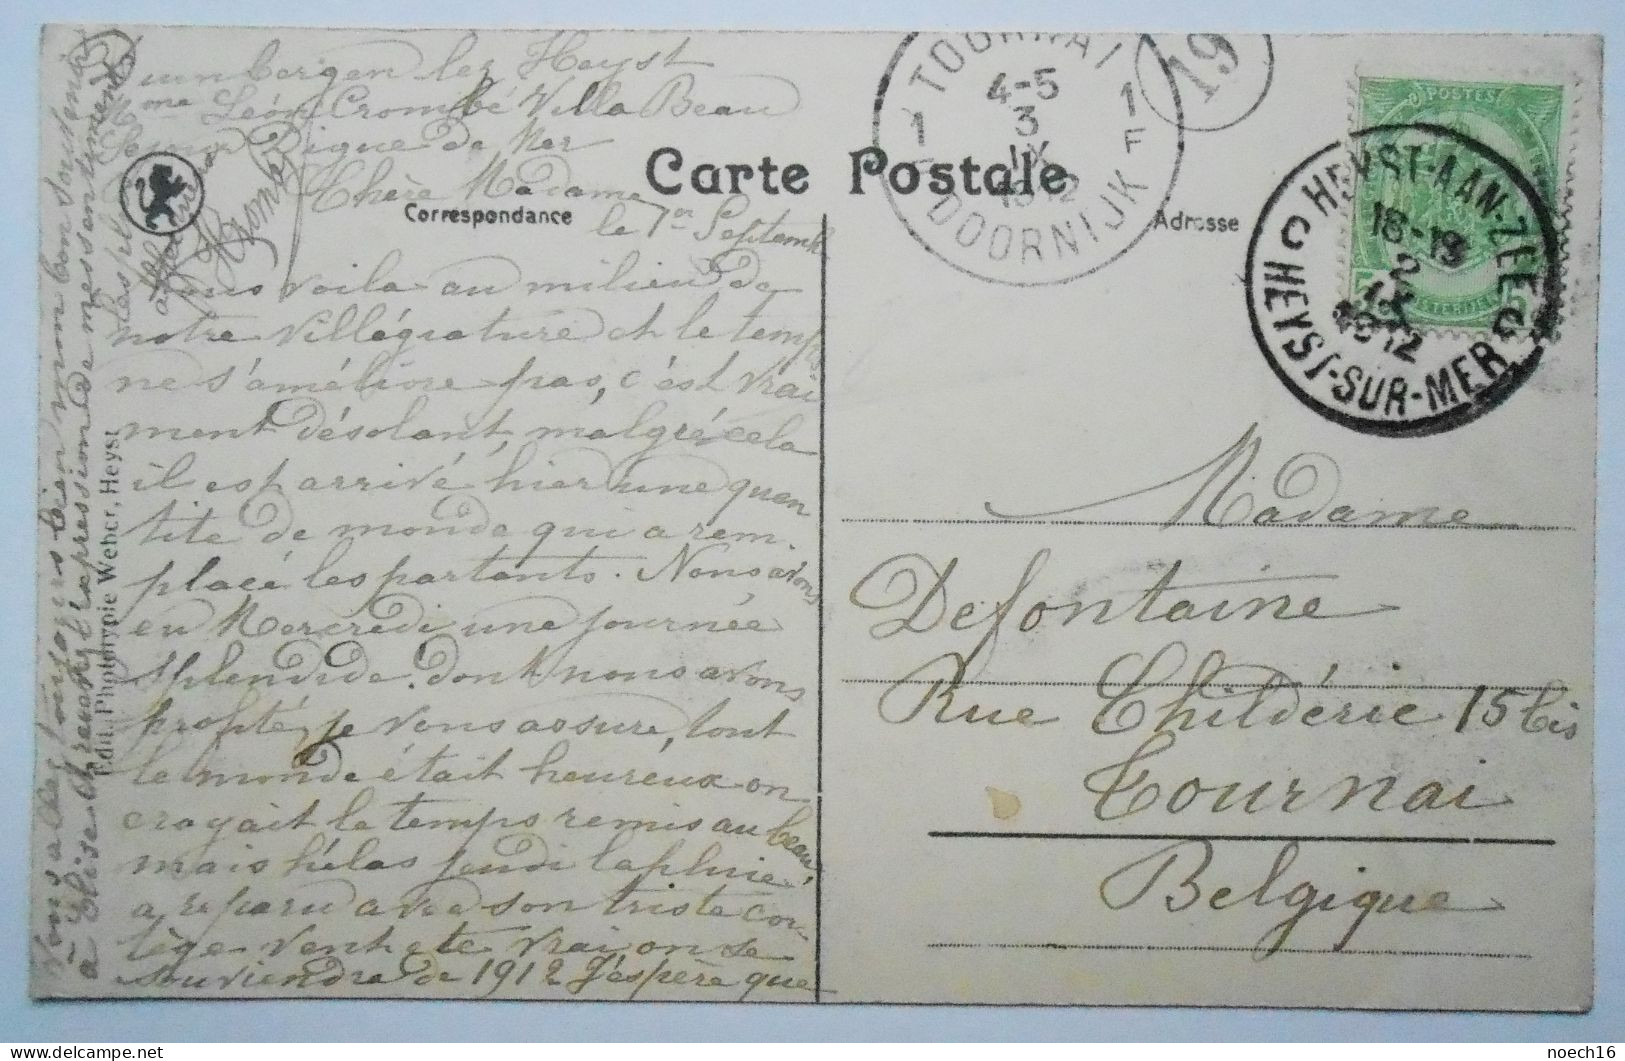 Duinbergen lez Heyst
Mme Léon Crombé Villa Beau
Digue de Mer
Chère Madame
le 1er Septemb
Vous voila au milieu de
notre villégiature et le temps
ne s'améliore pas, c'est vrai
ment désolant, malgré cela
il est arrivé hier une quan
tité de monde qui a rem-
placé les partants. Nous avons
eu Mercredi une journée
splendide dont nous avons
profité, je vous assure, tout
le monde était heureux on
croyait le temps remis au beau,
mais hélas jeudi la pluie
a reparu avec son triste cor-
tège vent etc vrai on se
souviendra de 1912 J'espère que
Vous allez toujours bien mon bon souvenir
à Elise et recevez l'expression de mes sentiments
les plus
affectueux
Crombé
Edit. Photohypie Weber, Heyst
Carte Postale
Correspondance
Adresse
TOURNAI
1 4-5 1
3
IX F
1912
DOORNIJK
19
POSTES
5
HEYST-AAN-ZEE
C 18-19
2
IX
1912
HEYST-SUR-MER
Madame
Defontaine
Rue Childéric 15 bis
Tournai
Belgique